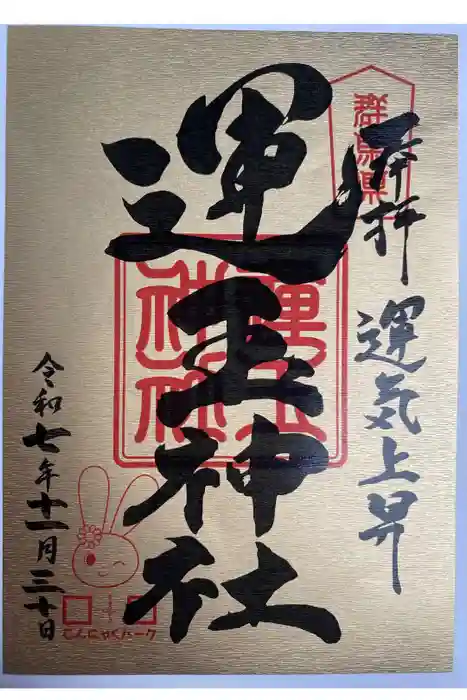 奉拝
運気上昇
群馬県
運玉神社
運玉神社
令和七年十一月三十日
こんにゃくパーク